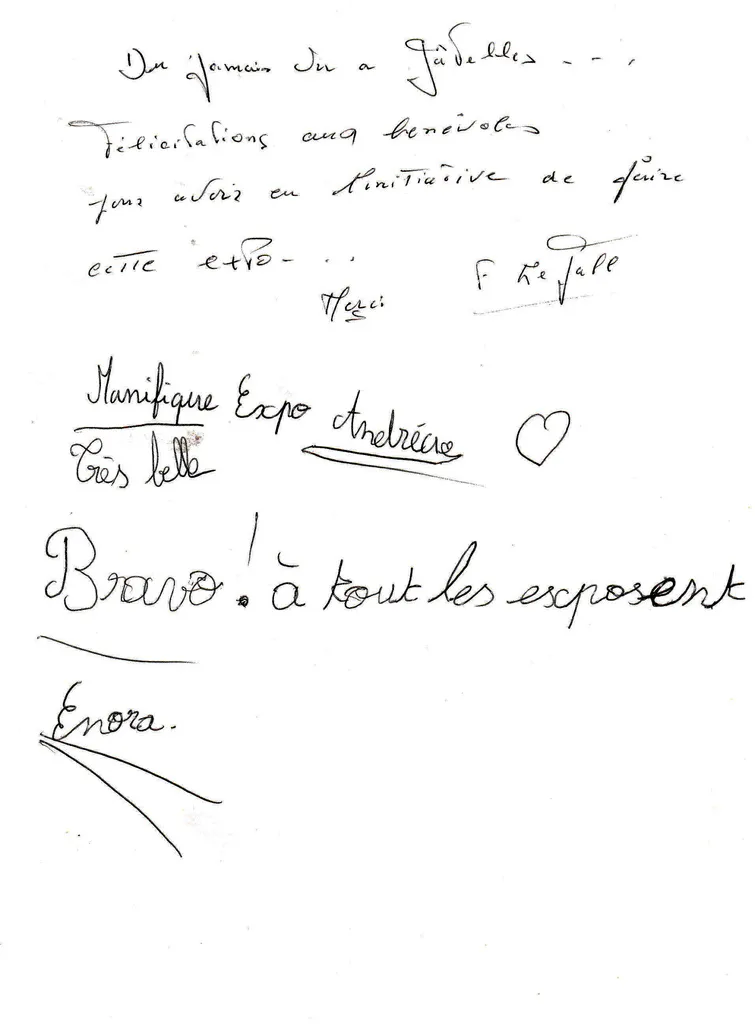 Du jamais vu a Gâvelles - - .
Félicitations aux benévoles
pour avoir eu l'initiative de faire
cette expo- ...
Merci F Le Fall
Manifique Expo
Très belle
Bravo! à tout les exposent
Enora.